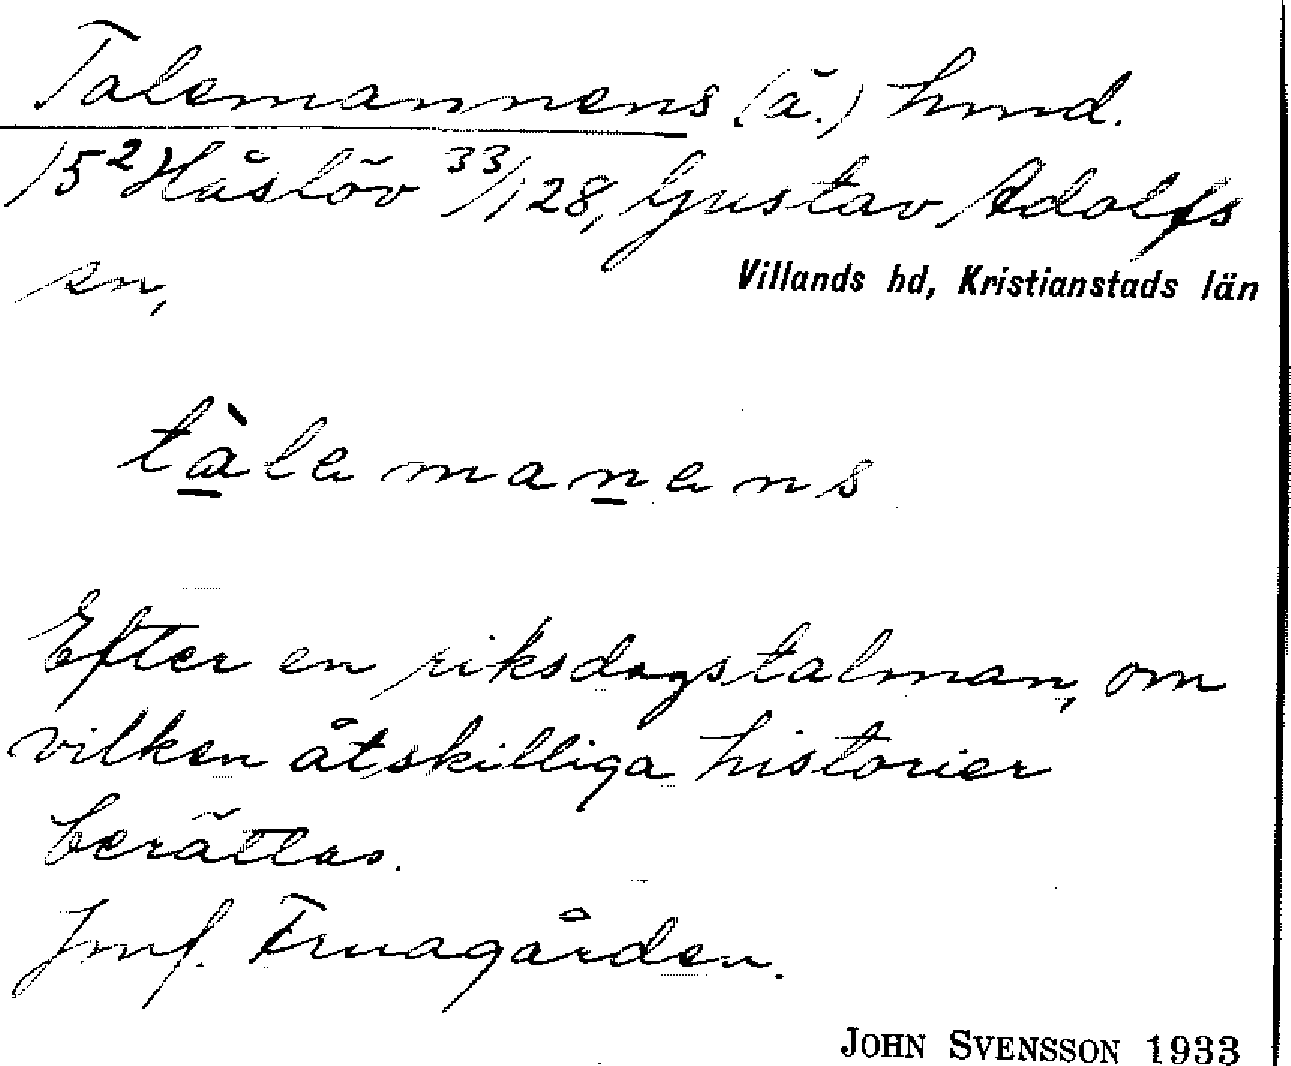 Talemannens (ä.) hmd.
15² Håslöv ³³/128, Gustav Adolfs
sn,
Villands hd, Kristianstads län
tàlemanens
Efter en riksdagstalman, om
vilken åtskilliga historier
berättas.
Jmf. Fruagården.
JOHN SVENSSON 1933